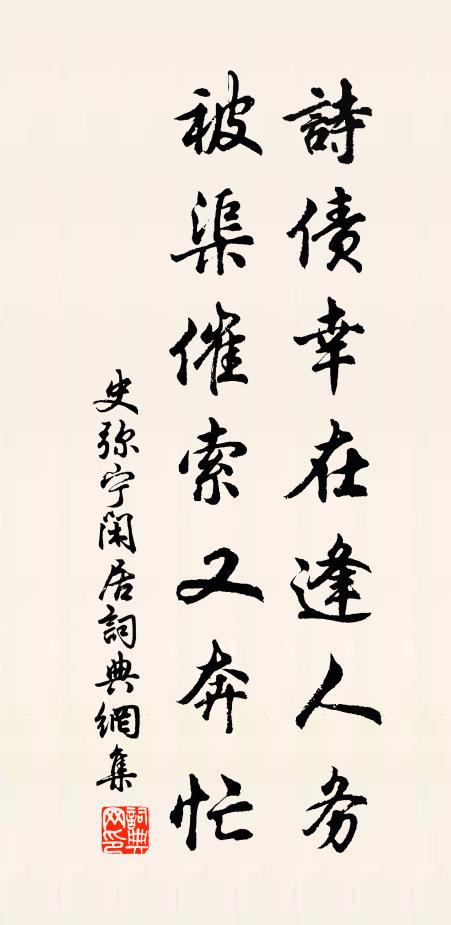 詩債幸在逢人务
被渠催索又奔忙
史弥宁閑居詞典網集
詞典網印